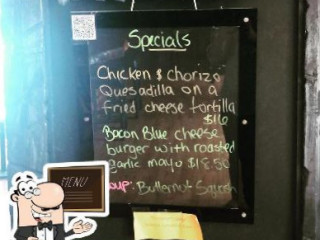 Specials
Chicken $ Chorizo
Quesadilla on a
fried cheese tortilla
$16
Bacon Blue cheese
burger with roasted
garlic mayo $18.50
oup: Butternut Squash
MENU